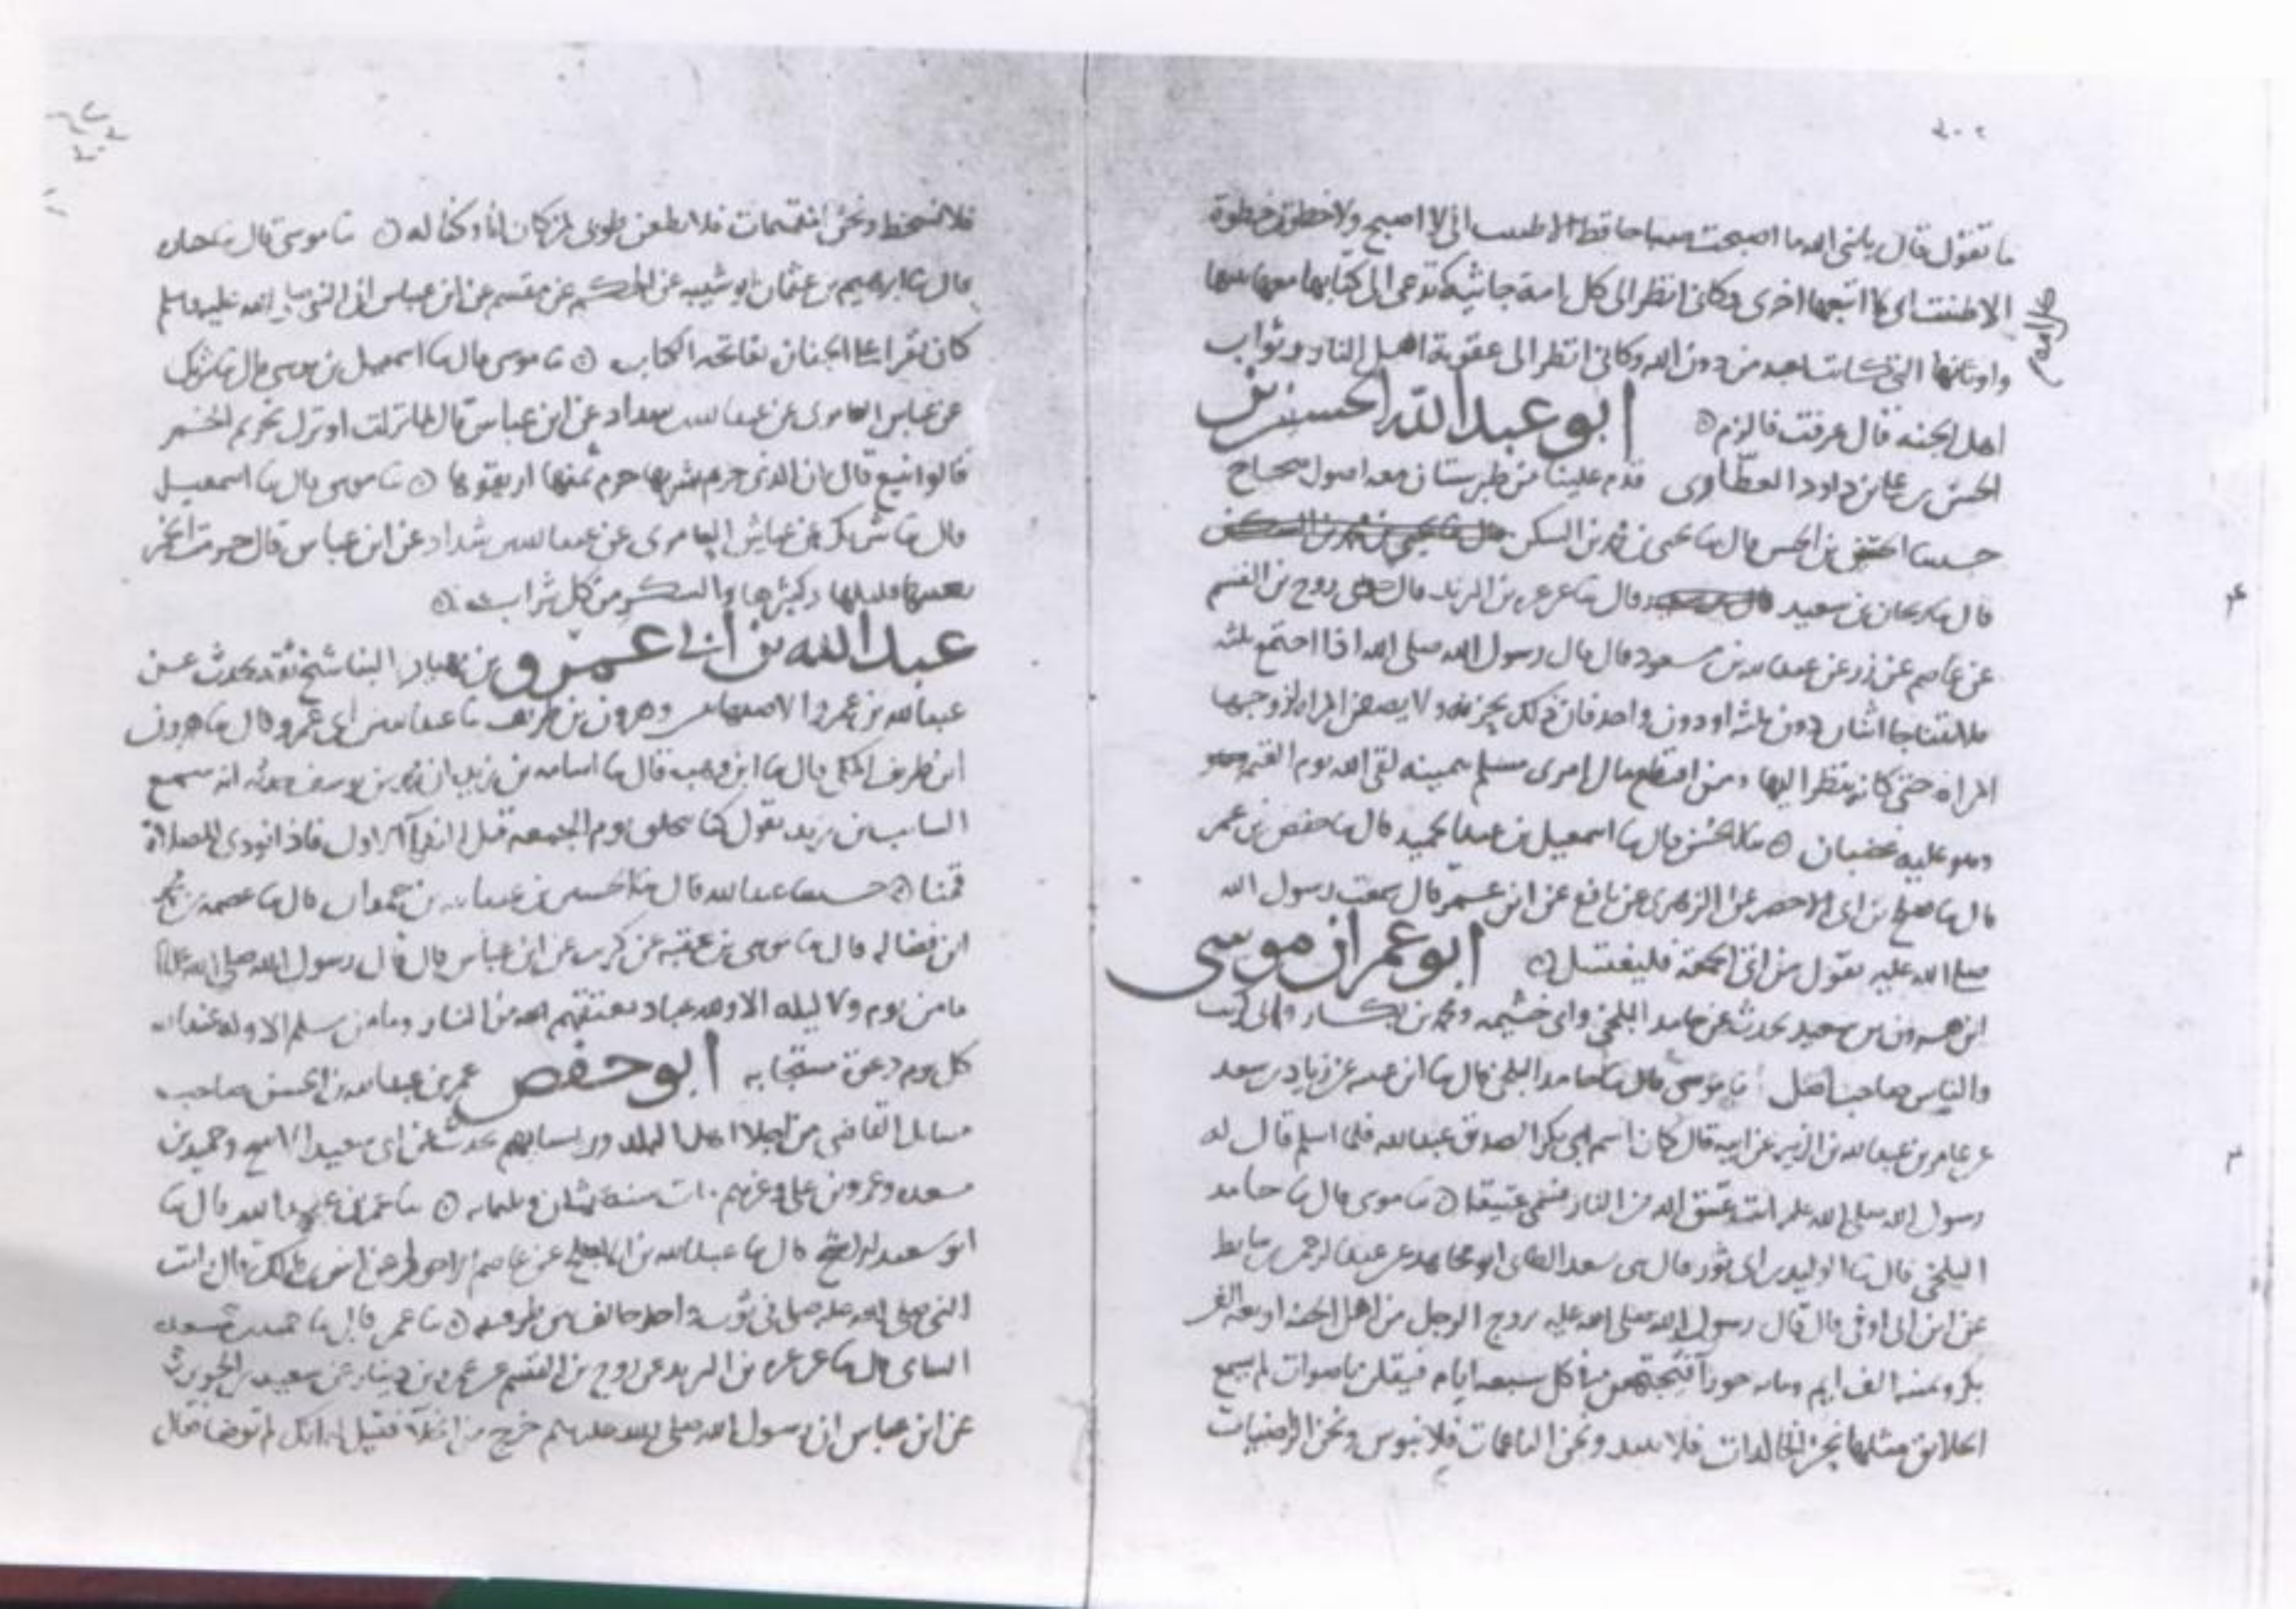 ٢٠٢
ما تقول قال يا نبي الله ما اصبحت صباحا قط الا ظننت اني لا اصبح ولا خطوت خطوة
الا ظننت اني لا اتبعها اخرى وكاني انظر الى كل امة جاثية تدعى الى كتابها معها نبيها
واوثانها التي كانت تعبد من دون الله وكاني انظر الى عقوبة اهل النار وثواب
اهل الجنه قال عرفت فالزم ابو عبد الله الحسن بن
الحسن بن علي بن داود العطاوى قدم علينا من طبرستان معه اصول صحاح
حدثنا الحسن بن الحسن قال ثنا يحيى بن محمد بن السكن
قال ثنا ريحان بن سعيد قال ثنا عرعره بن البرند قال روح بن القسم
عن عاصم عن زر عن عبد الله بن مسعود قال قال رسول الله صلى الله اذا اجتمع ثلثه
فلا يتناجا اثنان دون ثلثه او دون واحد فان ذلك يحزنه ولا يصف المراه لزوجها
المراه حتى كانه ينظر اليها ومن اقتطع مال امرى مسلم بيمينه لقى الله يوم القيمه
وهو عليه غضبان ثنا الحسن قال ثنا اسمعيل بن عبد الحميد قال ثنا حفص بن عمر
قال ثنا صالح بن ابى الاخضر عن الزهرى عن نافع عن ابن عمر قال سمعت رسول الله
صلى الله عليه يقول من اتى الجمعة فليغتسل ابو عمران موسى
ابن هرون بن سعيد يحدث عن حامد البلخى وابى خثيمه ومحمد بن بكار وابى كريب
والناس صاحب اصل ثنا موسى قال ثنا حامد البلخى قال ثنا ابن عيينه عن زياد بن سعد
عن عامر بن عبد الله بن الزبير عن ابيه قال كان اسم ابى بكر الصديق عبد الله فلما اسلم قال له
رسول الله صلى الله عليه انت عتيق الله من النار فسمى عتيقا ثنا موسى قال ثنا حامد
البلخى قال ثنا الوليد بن ابى ثور قال سعد الطائى ابو مجاهد عن عبد الرحمن بن سابط
عن ابن ابى اوفى قال قال رسول الله صلى الله عليه يزوج الرجل من اهل الجنه اربعه الف
بكر وثمنيه الف ايم ومايه حورا فيجتمعن فى كل سبعه ايام فيقلن باصوات لم يسمع
الخلايق مثلها نحن الخالدات فلا نبيد ونحن الناعمات فلا نبوس ونحن الراضيات
فلا نسخط ونحن المقيمات فلا نظعن طوبى لمن كان لنا وكنا له ثنا موسى قال ثنا
قال ثنا ابرهيم بن عثمان ابو شيبه عن الحكم عن مقسم عن ابن عباس ان النبى صلى الله عليه وسلم
كان يقرا على الجنائز بفاتحه الكتاب ثنا موسى قال ثنا اسمعيل بن موسى قال ثنا شريك
عن عياش العامرى عن عبد الله بن شداد عن ابن عباس قال لما نزلت او نزل تحريم الخمر
قالوا نبيع قال ان الذى حرم شربها حرم ثمنها اريقوها ثنا موسى قال ثنا اسمعيل
قال ثنا شريك عن عياش العامرى عن عبد الله بن شداد عن ابن عباس قال حرمت الخمر
بعينها قليلها وكثيرها والسكر من كل شراب
عبد الله بن ابى عمرو بن البنا شيخ ثقه يحدث عن
عبد الله بن عمرو الاصبهانى وهرون بن طريف ثنا عبد الله بن ابى عمرو قال ثنا هرون
ابن طريف المكى قال ثنا ابن وهب قال ثنا اسامه بن زيد ان محمد بن يوسف حدثه انه سمع
السايب بن يزيد يقول كنا نحلق يوم الجمعه قبل الاول فاذا نودى للصلاة
قمنا حدثنا عبد الله قال ثنا الحسين بن عبد الله بن حمران قال ثنا عصمه بن محمد
ابن فضاله قال ثنا موسى بن عقبه عن كريب عن ابن عباس قال قال رسول الله صلى الله عليه
ما من يوم ولا ليله الا ولله عباد يعتقهم الله من النار وما من مسلم الا وله عند الله
كل يوم دعوة مستجابه ابو حفص عمر بن عبد الله بن الحسن صاحب
مسايل القاضى من اجلا اهل البلد وريسائهم حدث عن ابى سعيد الاشج وحميد بن
مسعده وعمرو بن على وغيرهم مات سنة ثمان وثلثمايه ثنا عمر بن عبد الله قال ثنا
ابو سعيد الاشج قال ثنا عبد الله بن الاجلح عن عاصم الاحول عن انس بن مالك قال رايت
النبى صلى الله عليه صلى فى ثوب واحد خالف بين طرفيه ثنا عمر قال ثنا حميد بن مسعده
السامى قال ثنا عرعره بن البرند عن روح بن القسم عن عمرو بن دينار عن سعيد بن الحويرث
عن ابن عباس ان رسول الله صلى الله عليه وسلم خرج من الخلا فقيل له انك لم توضا فقال